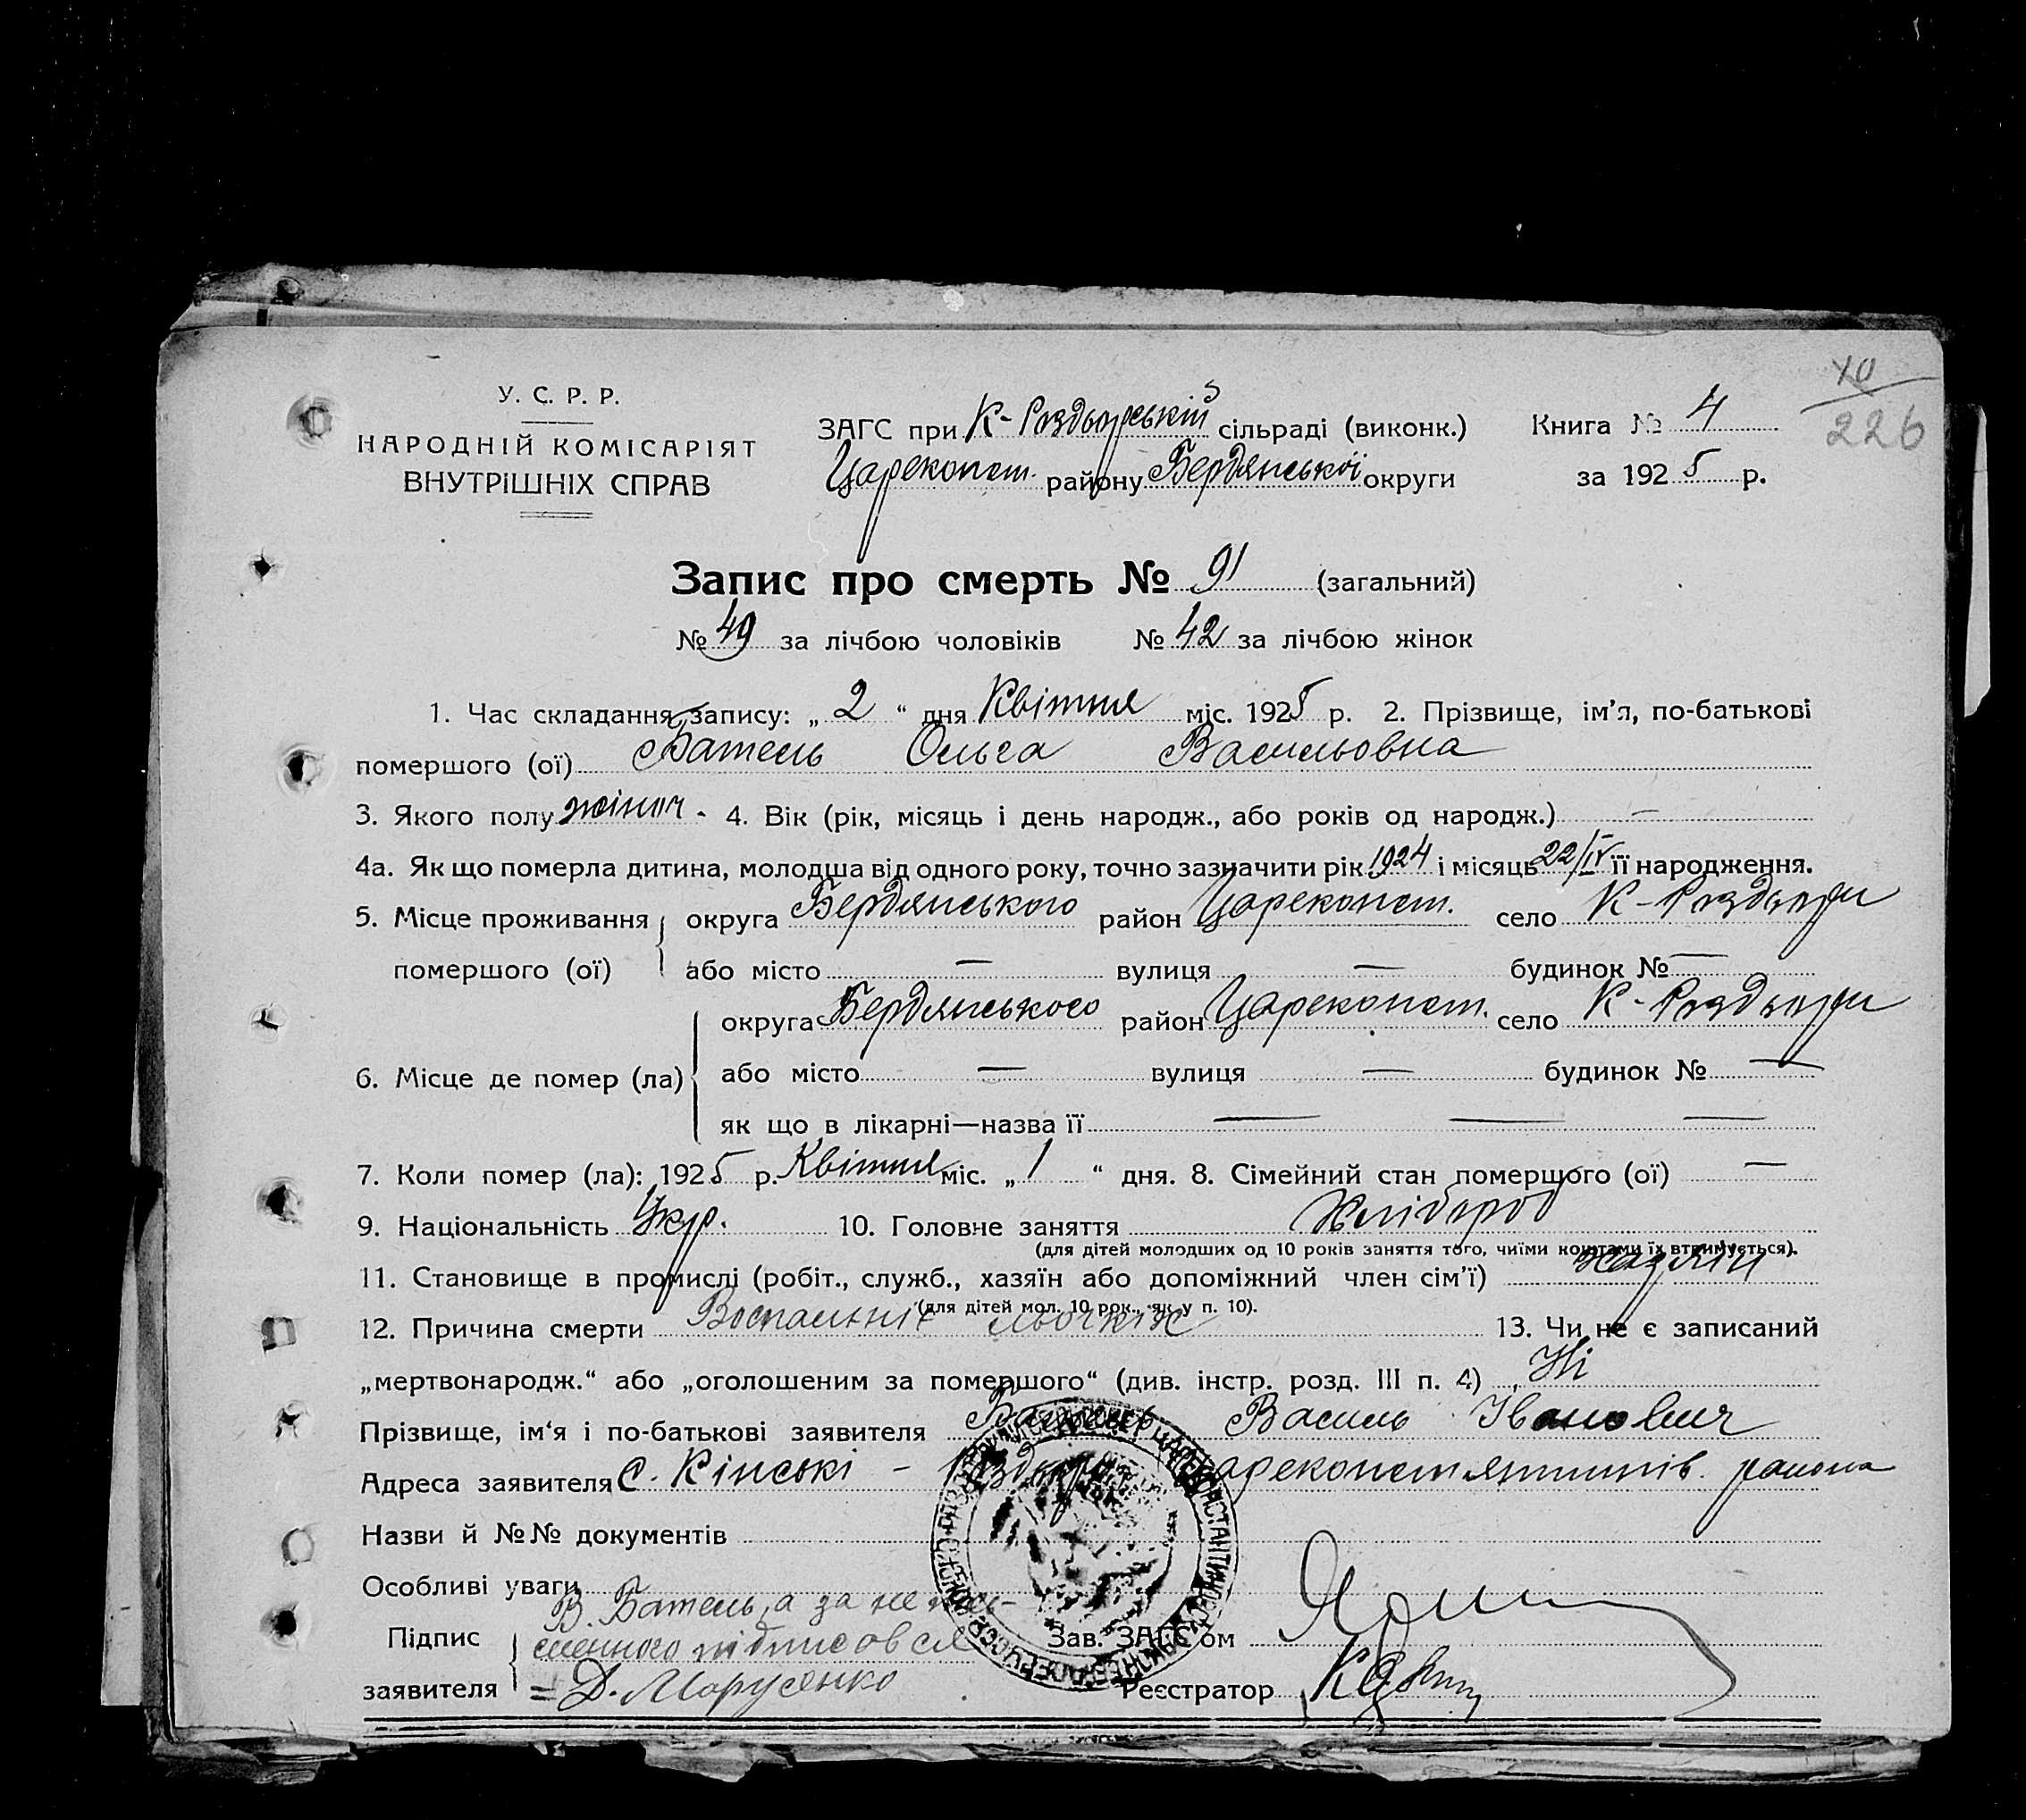 У. С. Р. Р.
НАРОДНІЙ КОМІСАРІЯТ
ВНУТРІШНІХ СПРАВ
ЗАГС при К-Роздорській сільраді (виконк.)
Цареконст. району Бердянської округи
Книга № 4
за 1925 р.
10
226
Запис про смерть № 91 (загальний)
№ 49 за лічбою чоловіків № 42 за лічбою жінок
1. Час складання запису: „ 2 “ дня Квітня міс. 1925 р. 2. Прізвище, ім’я, по-батькові
помершого (ої) Батель Ольга Васильовна
3. Якого полу жіноч. 4. Вік (рік, місяць і день народж., або років од народж.) —
4а. Як що померла дитина, молодша від одного року, точно зазначити рік 1924 і місяць 22/IV її народження.
5. Місце проживання округа Бердянського район Цареконст. село К-Роздори
помершого (ої) або місто — вулиця — будинок № —
округа Бердянського район Цареконст. село К-Роздори
6. Місце де помер (ла) або місто — вулиця — будинок № —
як що в лікарні—назва її — — —
7. Коли помер (ла): 1925 р. Квітня міс. „ 1 “ дня. 8. Сімейний стан померщого (ої) —
9. Національність Укр. 10. Головне заняття Хлібороб
(для дітей молодших од 10 років заняття того, чиїми коштами їх втримується).
11. Становище в промислі (робіт., служб., хазяїн або допоміжний член сім’ї) хазяін
(для дітей мол. 10 рок., як у п. 10).
12. Причина смерти Воспалыніє льогкіх 13. Чи не є записаний
„мертвонародж.“ або „оголошеним за помершого“ (див. інстр. розд. III п. 4) Ні
Прізвище, ім‘я і по-батькові заявителя Батель Василь Іванович
Адреса заявителя с. Кінські - Роздори Цареконстянтинів. района
Назви й №№ документів
Особливі уваги
Підпис В. Батель, а за не пись-
менного підписовся
заявителя = Д. Марусянко
Зав. ЗАГС’ом
Реєстратор